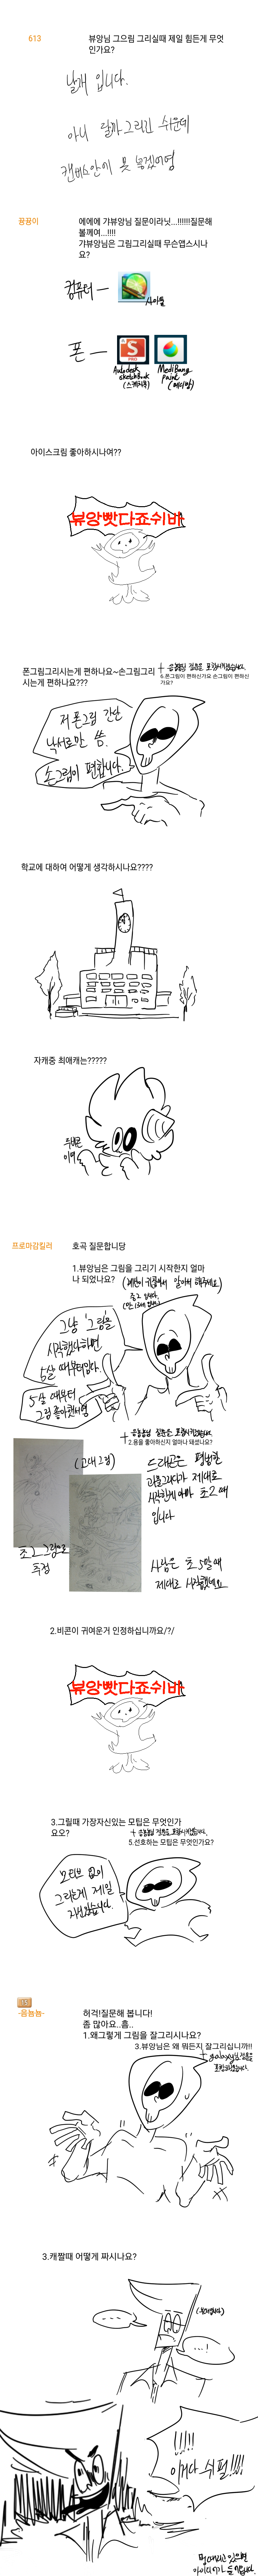 613
뷰앙님 그으림 그리실때 제일 힘든게 무엇
인가요?
날개 입니다.
아니 딸까 그리긴 쉬운데
캔버스안에 못 넣겠어영
끙끙이
에에에 갸뷰앙님 질문이라닛...!!!!!!질문해
볼께여...!!!!
갸뷰앙님은 그림그리실때 무슨앱스시나
요?
컴퓨터 —
사이툴
폰 —
Autodesk
sketchBook
(스케치북)
MediBang
Paint
(메디방)
아이스크림 좋아하시나여??
뷰앙빳다죠쉬바
폰그림그리시는게 편하나요~손그림그리
시는게 편하나요???
+ 음뇸뇸님 질문도 포함시켰습니다.
6.폰그림이 편하신가요 손그림이 편하신
가요?
저 폰그림 간단
낙서로만 씀.
손그림이 편합니다.
학교에 대하여 어떻게 생각하시나요????
자캐중 최애캐는?????
프로마감질러
호곡 질문합니당
1.뷰앙님은 그림을 그리기 시작한지 얼마
나 되었나요?
그냥 '그림'을
시작했다하면
5살 때부터입니다.
5살 때부터
그림 좋아했어영
+ 음뇸뇸님 질문도 포함시켰습니다.
2.용을 좋아하신지 얼마나 돼셨나요?
(고대그림)
초2 그림으로
추정
드래곤은
제대로
시작한게 아마 초2때
입니다
사람은 초5말때
제대로 시작했네요
2.비콘이 귀여운거 인정하십니까요/?/
뷰앙빳다죠쉬바
3.그릴때 가장자신있는 모팁은 무엇인가
요오?
+ 음뇸뇸님 질문도 포함시켰습니다.
5.선호하는 모팁은 무엇인가요?
모티브 없이
그리는게 제일
자신있습니다.
-음뇸뇸-
허걱!질문해 봅니다!
좀 많아요..흠..
1.왜그렇게 그림을 잘그리시나요?
3.뷰앙님은 왜 뭐든지 잘그리십니까!!!
+ galaxy님 질문을
포함시켰습니다.
3.캐짤때 어떻게 짜시나요?
...
...!
!!!!
이거다 쉬펄!!!!
멍때리고 있으면
아이디어가 들어옵니다.